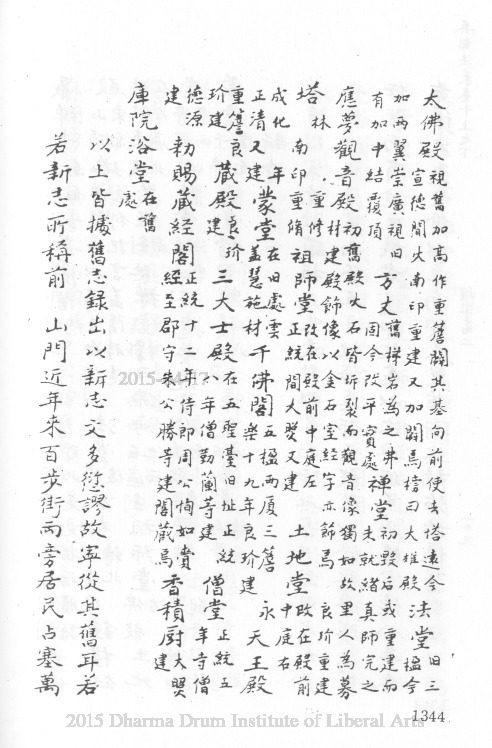 太佛殿視舊加高作重簷闢其基向前使去塔遠今
宣德間火南印重建又加闢焉榜曰大雄殿
法堂旧三楹今
加兩翼堂廣視旧有加中結覆頂
方丈舊梯岩為之弗周今改平實處
禪堂初毀后或重建而未就緒真師完之
應夢觀音殿初舊殿火石皆坼裂而觀音像獨如故里人為募材建殿飾像以金石室經字亦飾焉良玠重建
塔林重修南印重脩
祖師堂改在殿前中庭左正統間大㷼又建
土地堂改在殿前中庭右
成化 年正清又建
蒙堂在旧處雲盖慧施材
千佛閣五楹兩厦三簷永樂十九年良玠建
天王殿
重簷良玠建
藏殿良玠建
三大士殿在五聖臺旧址正統八年僧勤蘭等建
僧堂正統五年寺僧
德源建
勅賜藏經閣正統十二年侍郎周公恂如賚經至郡守朱公勝等建閣藏焉
香積厨大㷼建
庫院浴堂在舊處
以上皆據舊志錄出以新志文多愆謬故寧從其舊耳若
若新志所稱前 山門近年來百步街兩旁居民占塞萬
1344
2015 Dharma Drum Institute of Liberal Arts